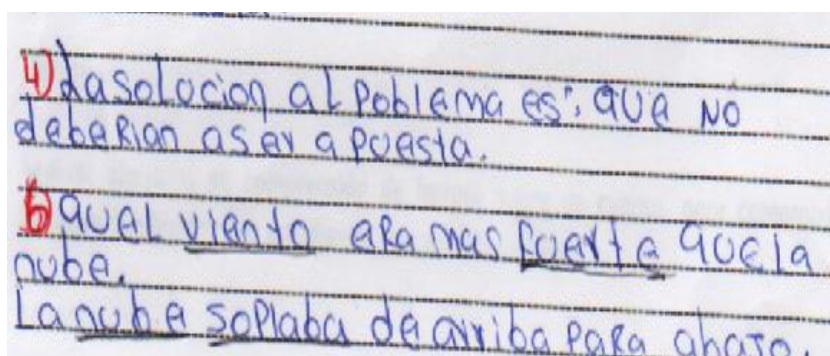 4) La solocion al poblema es", que no
deberian aser apuesta.
6) quel viento era mas fuerte que la
nube.
La nube soplaba de arriba para abajo.